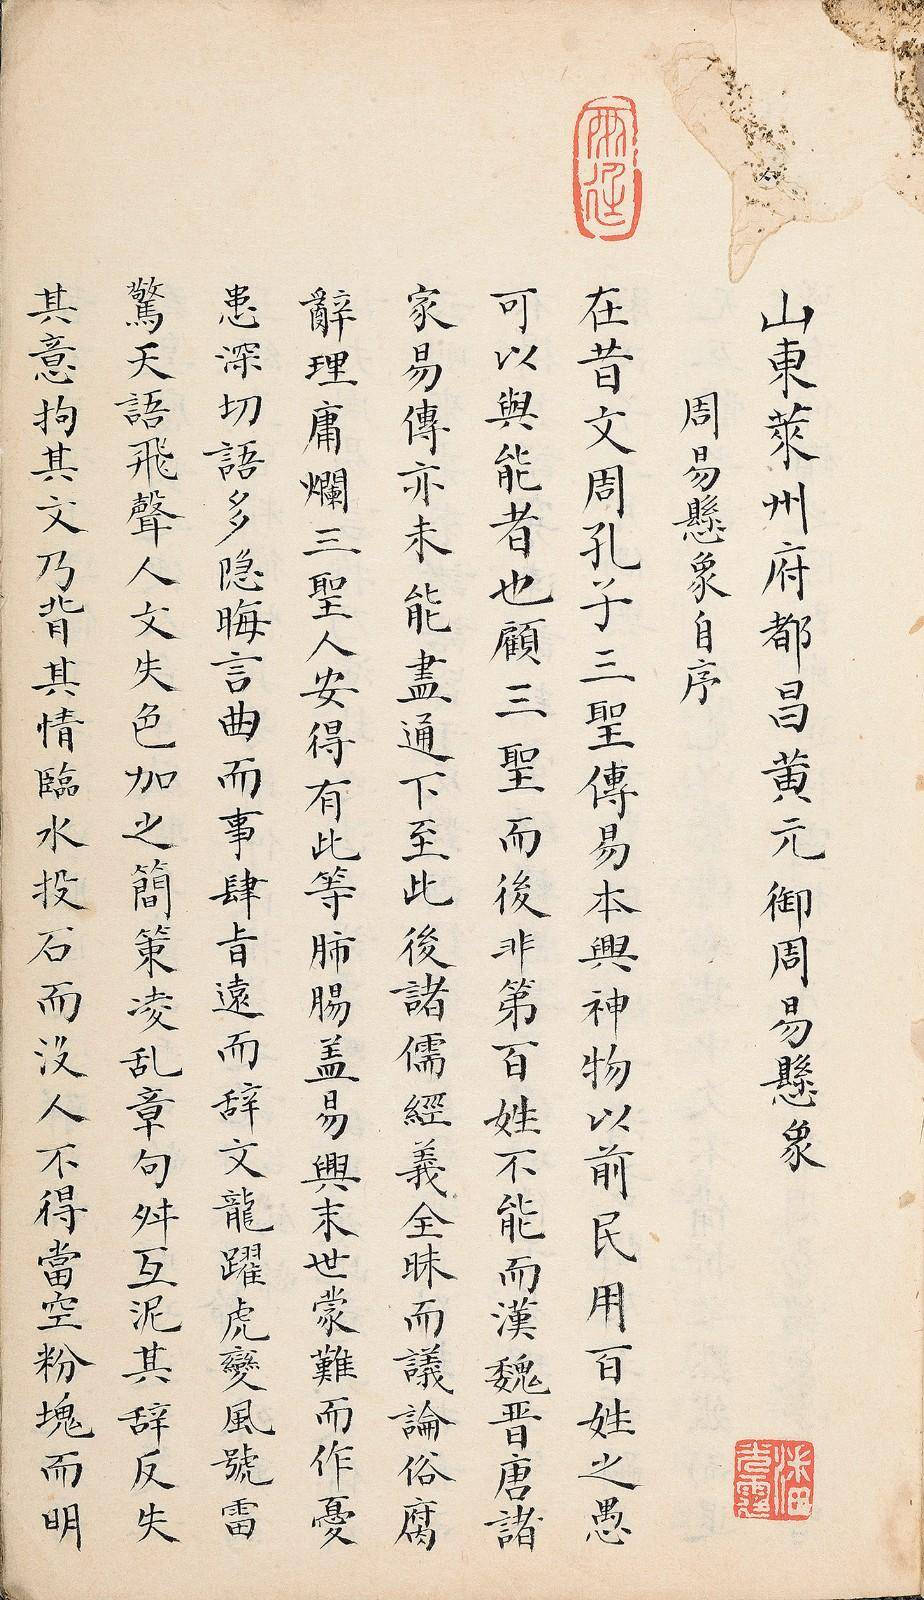 山東萊州府都昌黃元御周易懸象
周易懸象自序
在昔文周孔子三聖傳易本興神物以前民用百姓之愚
可以與能者也顧三聖而後非第百姓不能而漢魏晋唐諸
家易傳亦未能盡通下至此後諸儒經義全昧而議論俗腐
辭理庸爛三聖人安得有此等肺腸盖易興末世蒙難而作憂
患深切語多隐晦言曲而事肆旨遠而辞文龍躍虎變風號雷
驚天語飛聲人文失色加之簡策凌乱章句舛互泥其辞反失
其意拘其文乃背其情臨水投石而没人不得當空粉塊而明